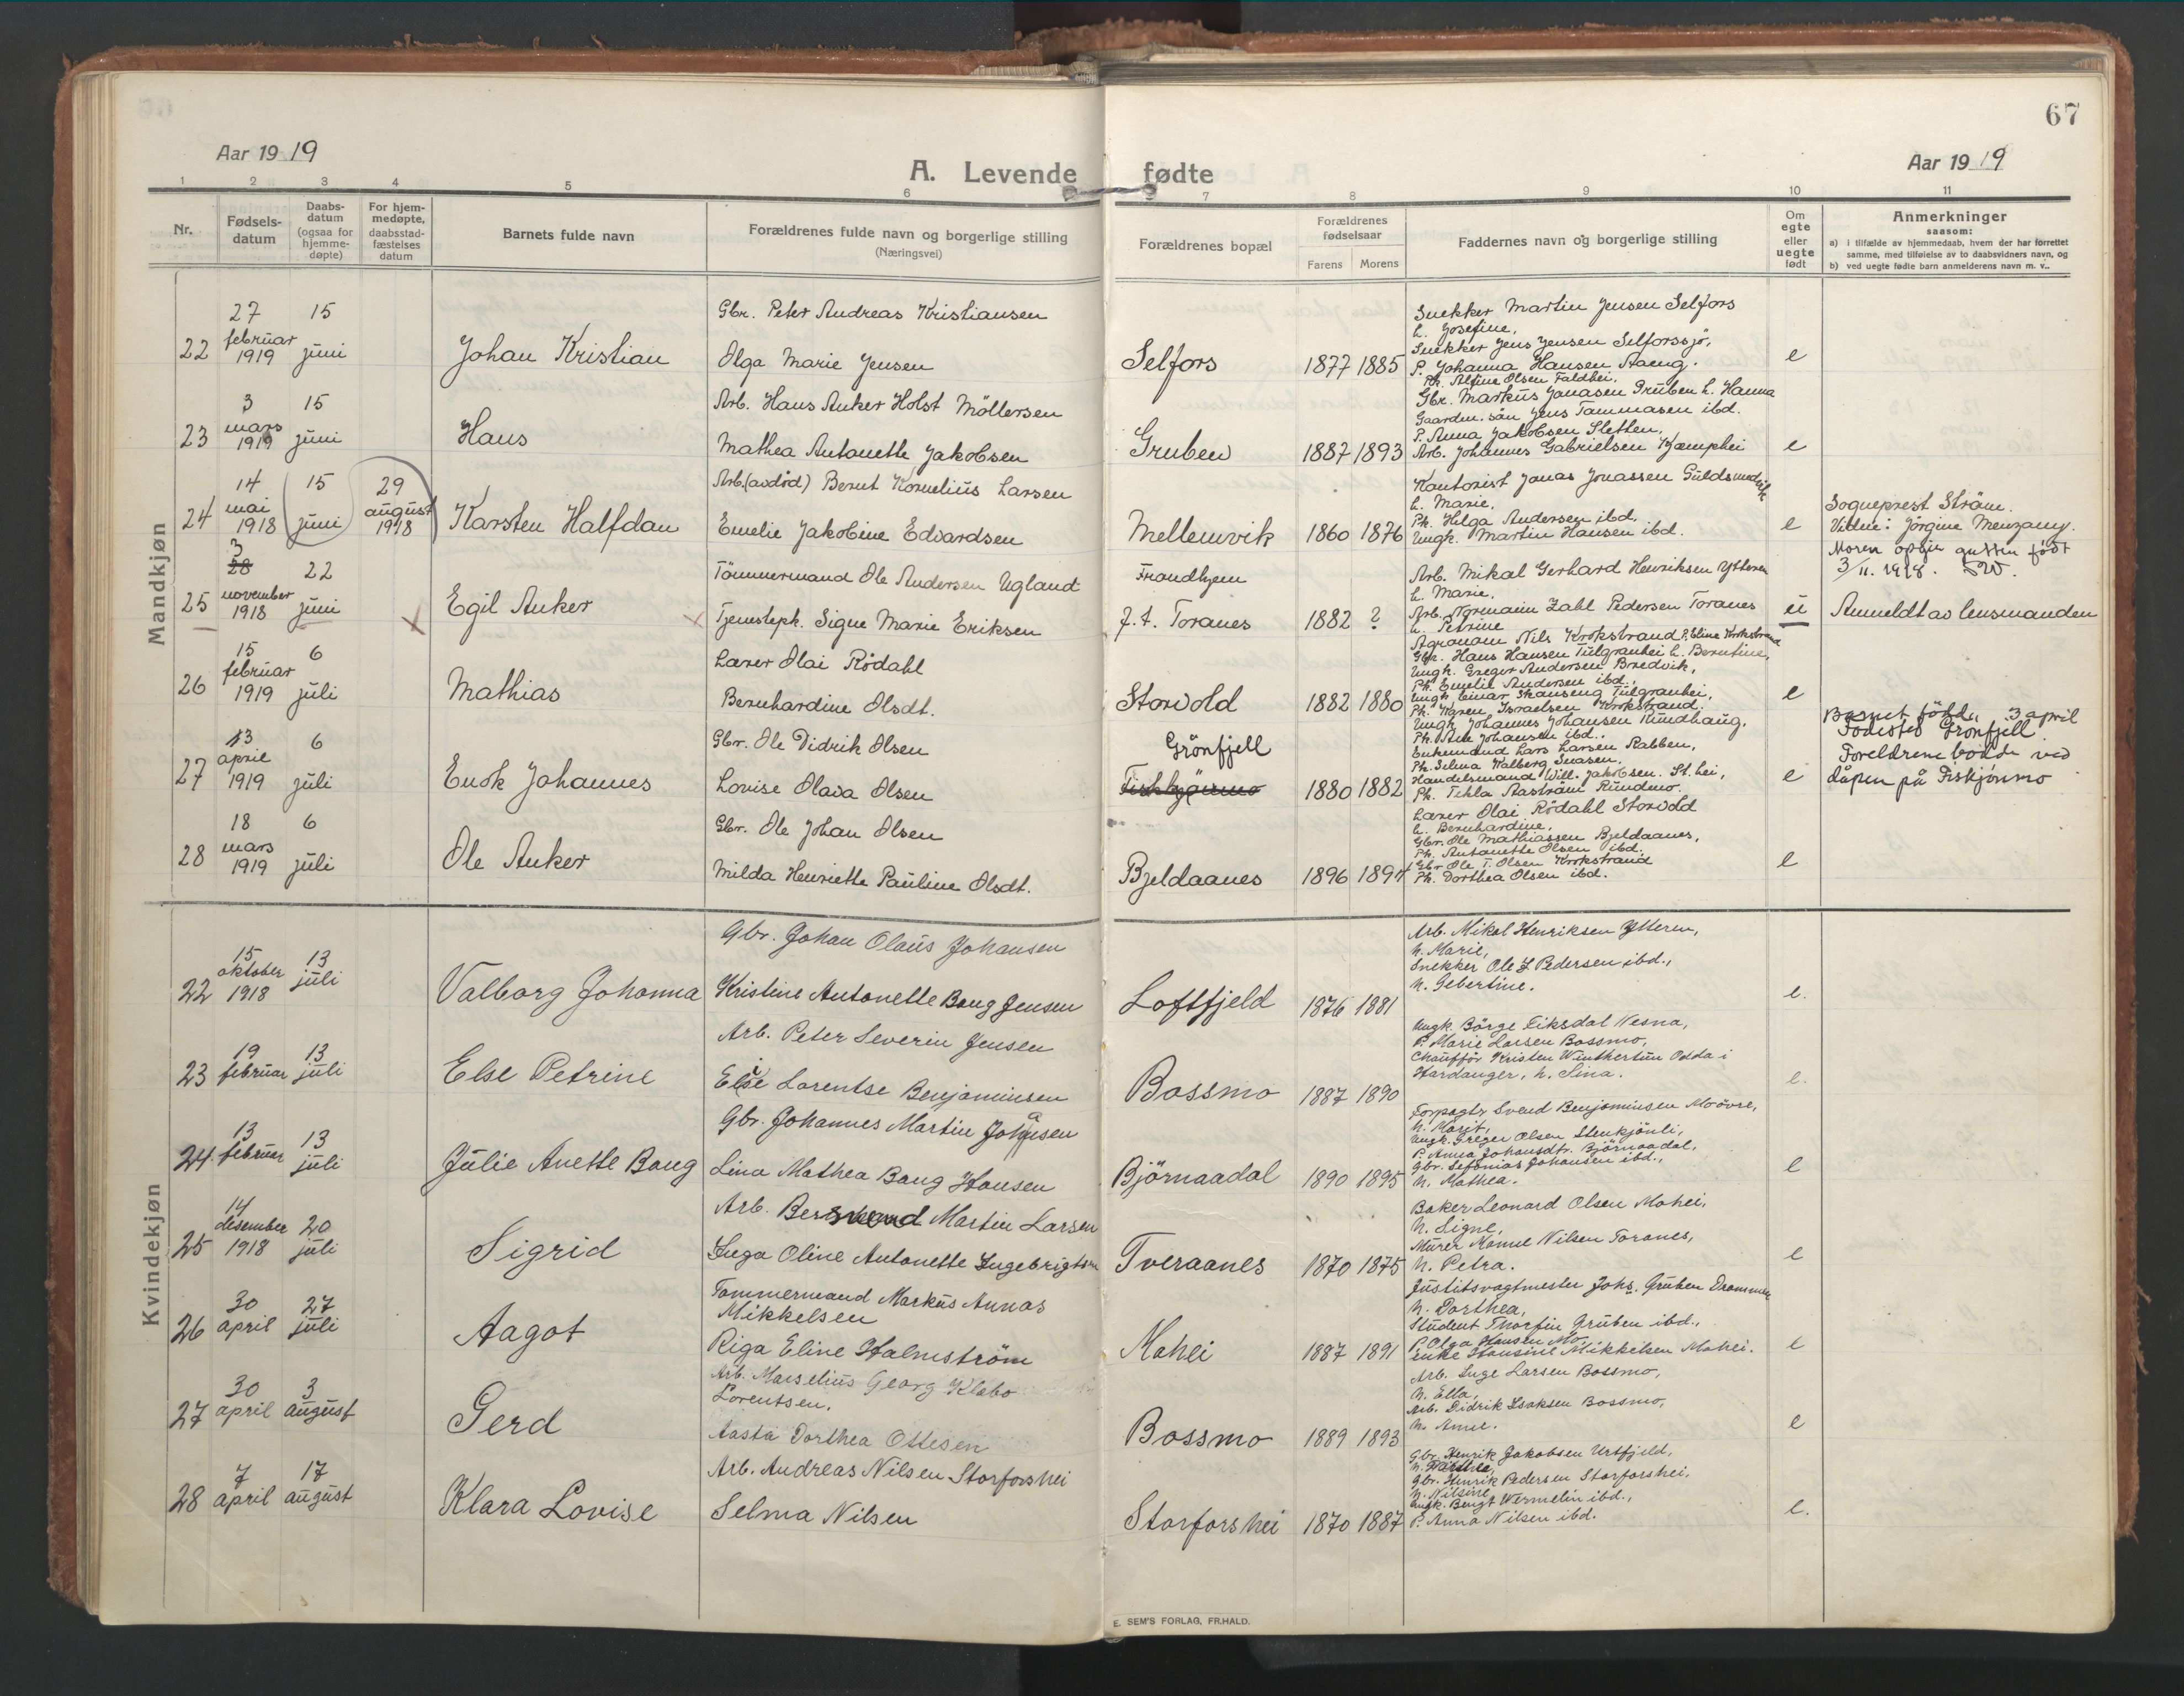 67
Aar 1919
A. Levende fødte
Aar 1919
1 2 3 4 5 6 7 8 9 10 11
Nr.
Fødsels-
datum
Daabs-
datum
(ogsaa for
hjemme-
døpte)
For hjem-
medøpte,
daabsstad-
fæstelses
datum
Barnets fulde navn
Forældrenes fulde navn og borgerlige stilling
(Næringsvei)
Forældrenes bopæl
Forældrenes
fødselsaar
Farens Morens
Faddernes navn og borgerlige stilling
Om
egte
eller
uegte
født
Anmerkninger
saasom:
a) i tilfælde av hjemmedaab, hvem der har forrettet
samme, med tilføielse av to daabsvidners navn, og
b) ved uegte fødte barn anmelderens navn m. v..
Mandkjøn
22
27 februar 1919
15 juni
Johan Kristian
Gbr. Peter Andreas Kristiansen
Olga Marie Jensen
Selfors
1877 1885
Snekker Martin Jensen Selfors
h. Josefine,
Snekker Jens Jensen Selforssjö,
P. Johanna Hansen Aaeng.
Ph. Alfine Olsen Faldhei.
e
23
3 mars 1919
15 juni
Hans
Arb. Hans Anker Holst Möllersen
Mathea Antonette Jakobsen
Gruben
1887 1893
Gbr. Markus Jonasen Gruben h. Hanna
Gaardm. sön Jens Tammasen ibd.
P. Anna Jakobsen Sletten.
Arb. Johannes Gabrielsen Kjæmphei
e
24
14 mai 1918
15 juni
29 august 1918
Karsten Halfdan
Arb. (avdød) Bernt Kornelius Larsen
Emelie Jakobine Edvardsen
Mellemvik
1860 1876
Kontorist Jonas Jonassen Guldsmedvik
h. Marie,
Ph. Helga Andersen ibd.
Ungk. Martin Hansen ibd.
e
Sogneprest Ström.
Vidne: Jörgine Menzony.
25
3
28
november 1918
22 juni
Egil Anker
Tömmermand Ole Andersen Ugland
Tjenesteph. Signe Marie Eriksen
Trondhjem
f. t. Toranes
1882 ?
Arb. Mikal Gerhard Henriksen Ytteren
h. Marie,
Arb. Normann Zahl Pedersen Toranes
h. Petrine
Agronom Nils Krokstrand P. Eline Krokstrand
u
Moren opgir gutten født
3/11. 1918.
Anmeldt av lensmanden
26
15 februar 1919
6 juli
Mathias
Lærer Olai Rödahl
Bernhardine Olsdt.
Storvold
1882 1880
Gbr. Hans Hansen Tulgranhei h. Berntine,
Ungk. Greger Andersen Bredvik,
Ph. Emelie Andersen ibd.,
Ungk. Einar Skanseng Tulgranhei,
Ph. Karen Israelsen Krokstrand.
e
27
13 april 1919
6 juli
Enok Johannes
Gbr. Ole Didrik Olsen
Lovise Olava Olsen
Grönfjell
Fiskkjönmo
1880 1882
Ungk. Johannes Johansen Rundhaug,
Ph. Ane Johansen ibd..
Enkemand Lars Larsen Rabben,
Ph. Selma Valberg Senasen.
Handelsmand Will. Jakobsen. St.hei,
Ph. Tekla Aaström Rundmo.
e
Barnet födt 3 april
Födested Grönfjell
Foreldrene bodde ved
dåpen på Fiskjönmo
28
18 mars 1919
6 juli
Ole Anker
Gbr. Ole Johan Olsen
Milda Henriette Pauline Olsdt.
Bjeldaanes
1896 1894
Lærer Olai Rödahl Storvold
h. Bernhardine,
Gbr. Ole Mathiassen Bjeldaanes,
Ph. Antonette Olsen ibd.
Gbr. Ole T. Olsen Krokstrand
Ph. Dorthea Olsen ibd.
e
Kvindekjøn
22
15 oktober 1918
13 juli
Valborg Johanna
Gbr. Johan Olaus Johansen
Kristine Antonette Bang Jensen
Loftfjeld
1876 1881
Arb. Mikal Henriksen Ytteren,
h. Marie,
Snekker Ole Z Pedersen ibd.,
h. Gebertine.
e.
23
19 februar
13 juli
Else Petrine
Arb. Peter Severin Jensen
Else Lorentse Benjaminsen
Bossmo
1887 1890
Ungk. Börge Eiksdal Nesna,
P. Marie Larsen Bossmo,
Chaufför Kristen Winthertun Odda i
Hardanger, h. Sina.
e.
24.
13 februar
13 juli
Julie Anette Bang
Gbr. Johannes Martin Johansen
Lina Mathea Bang Hansen
Björnaadal
1890 1895
Forpagtr Svend Benjaminsen Mo övre,
h. Marit,
Ungk. Greger Olsen Stenkjönli,
P. Anna Johansdtr. Björnaadal,
Gbr. Sefanias Johansen ibd.,
h. Mathea.
e
25
14 desember 1918
20 juli
Sigrid
Arb. Bersvend Martin Larsen
Inga Oline Antonette Ingebrigtsen
Tveraanes
1870 1875
Baker Leonard Olsen Mohei,
h. Signe,
Murer Monne Nilsen Toranes,
h. Petra.
e
26
30 april
27 juli
Aagot
Tömmermand Markus Annas
Mikkelsen
Riga Eline Halmström
Mohei
1887 1891
Justitsvagtmester Johs. Gruben Drammen
h. Dorthea,
Student Thorfin Gruben ibd.,
P. Olga Hansen Mo
enke Hansine Mikkelsen Mohei.
e
27
30 april
3 august
Gerd
Arb. Marselius Georg Klabo
Lorentsen.
Aasta Dorthea Ottesen
Bossmo
1889 1893
Arb. Inge Larsen Bossmo,
h. Ella,
Arb. Didrik Isaksen Bossmo,
h. Anne.
e
28
7 april
17 august
Klara Lovise
Arb. Andreas Nilsen Storforshei
Selma Nilsen
Storforshei
1870 1887
Gbr. Henrik Jakobsen Urtfjeld,
h. Dorthea,
Gbr. Henrik Pedersen Storforshei,
h. Nilsine
Ungk. Bengt Wermelin ibd.,
P. Anna Nilsen ibd.
e.
E. SEM'S FORLAG, FR.HALD.